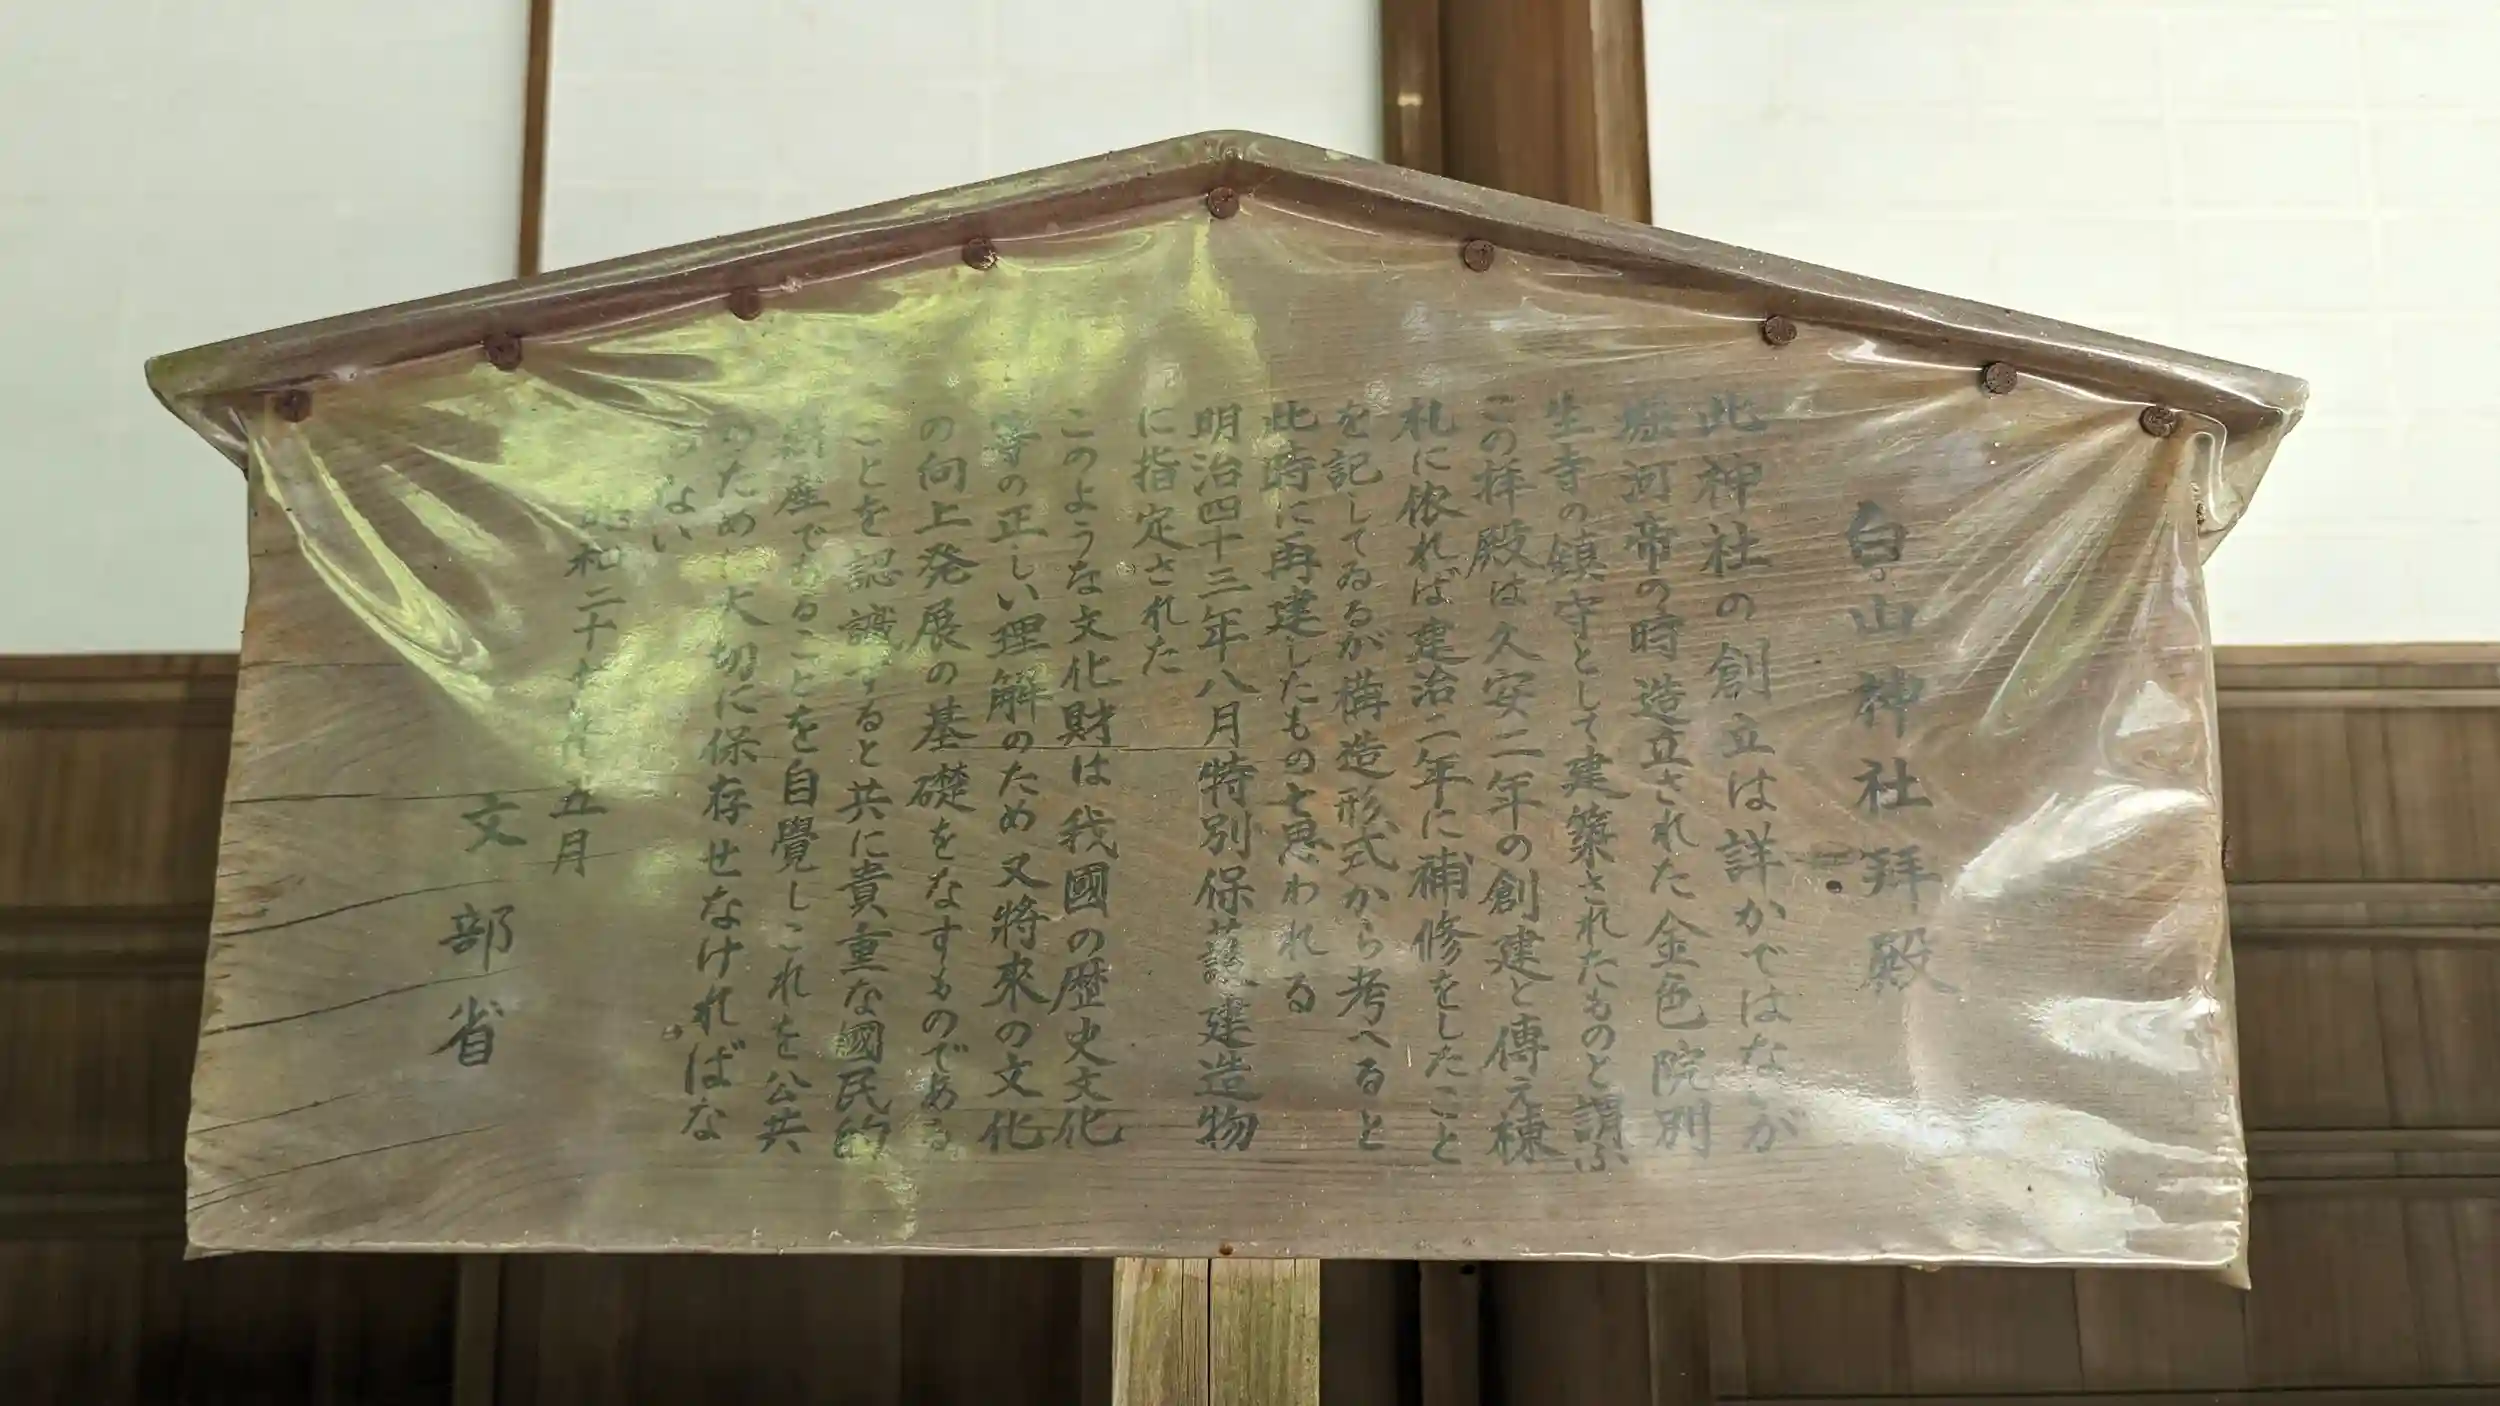 白山神社拜殿
此神社の創立は詳かではないが
堀河帝の時造立された金色院別
生寺の鎮守として建築されたものと謂ふ
この拝殿は久安二年の創建と傳え棟
札に依れば建治二年に補修をしたこと
を記してゐるが構造形式から考へると
此時に再建したものと思われる
明治四十三年八月特別保護建造物
に指定された
このような文化財は我國の歴史文化
等の正しい理解のため又將來の文化
の向上発展の基礎をなすものである
ことを認識すると共に貴重な國民的
財産であることを自覺しこれを公共
のため大切に保存せなければな
らない
昭和二十 年五月
文部省